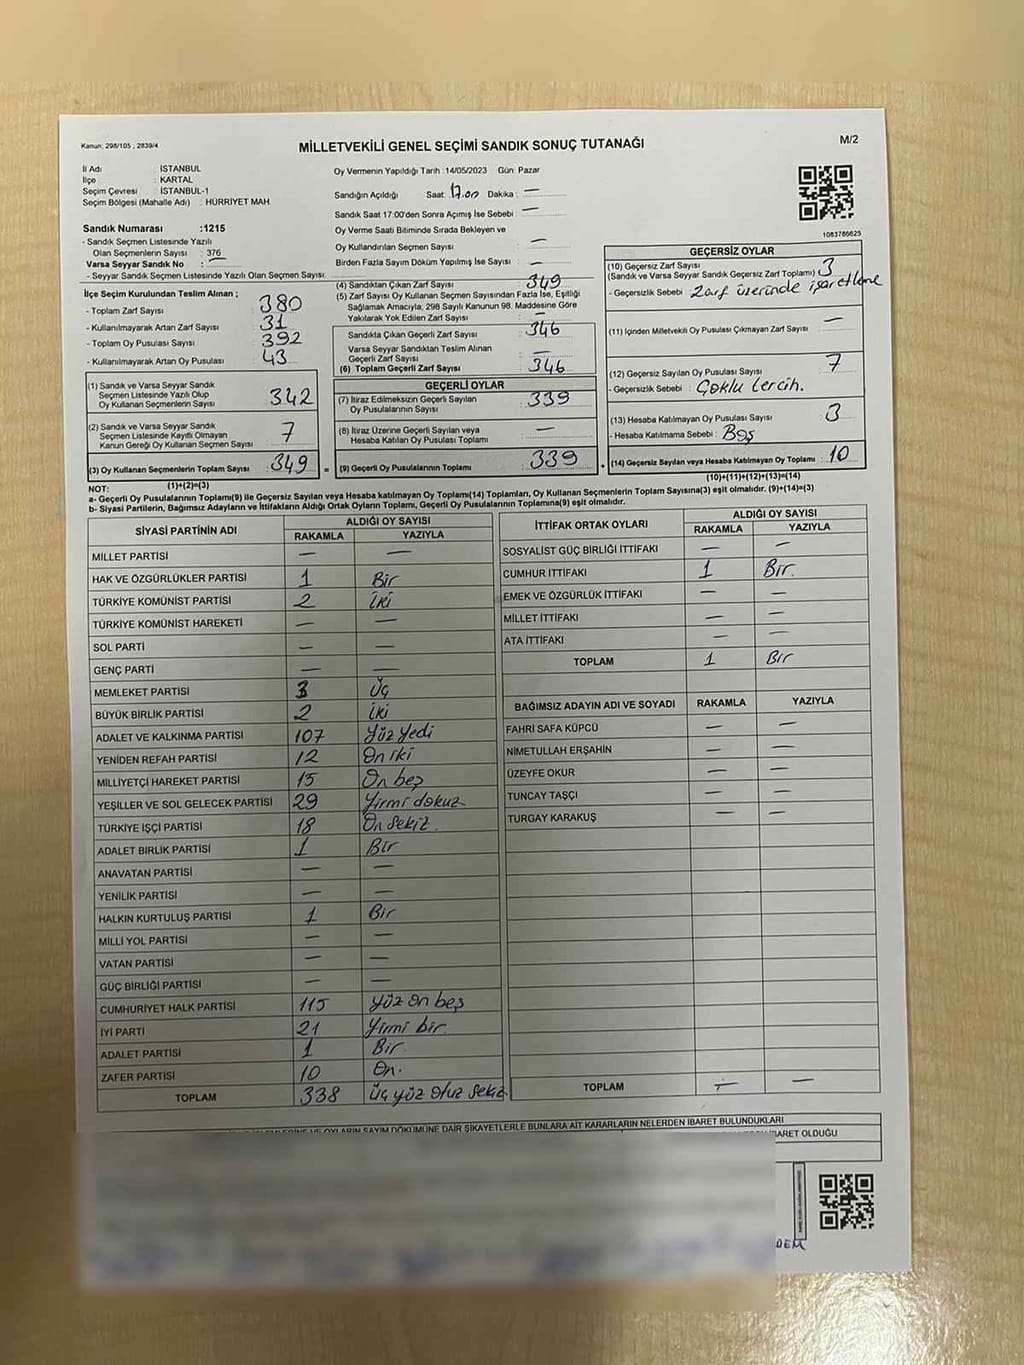 Kanun: 298/105 , 2839/4
MİLLETVEKİLİ GENEL SEÇİMİ SANDIK SONUÇ TUTANAĞI
M/2
İl Adı : İSTANBUL
İlçe : KARTAL
Seçim Çevresi : İSTANBUL-1
Seçim Bölgesi (Mahalle Adı) : HÜRRİYET MAH.
Sandık Numarası :1215
- Sandık Seçmen Listesinde Yazılı
Olan Seçmenlerin Sayısı : 376
Varsa Seyyar Sandık No : —
- Seyyar Sandık Seçmen Listesinde Yazılı Olan Seçmen Sayısı:
Oy Vermenin Yapıldığı Tarih :14/05/2023 Gün: Pazar
Sandığın Açıldığı Saat: 17.00 Dakika : —
Sandık Saat 17:00'den Sonra Açımış İse Sebebi : —
Oy Verme Saati Bitiminde Sırada Bekleyen ve
Oy Kullandırılan Seçmen Sayısı : —
Birden Fazla Sayım Döküm Yapılmış İse Sayısı : —
1083786625
İlçe Seçim Kurulundan Teslim Alınan ;
- Toplam Zarf Sayısı : 380
- Kullanılmayarak Artan Zarf Sayısı : 31
- Toplam Oy Pusulası Sayısı : 392
- Kullanılmayarak Artan Oy Pusulası : 43
(1) Sandık ve Varsa Seyyar Sandık
Seçmen Listesinde Yazılı Olup
Oy Kullanan Seçmenlerin Sayısı : 342
(2) Sandık ve Varsa Seyyar Sandık
Seçmen Listesinde Kayıtlı Olmayan
Kanun Gereği Oy Kullanan Seçmen Sayısı : 7
(3) Oy Kullanan Seçmenlerin Toplam Sayısı : 349
(1)+(2)=(3)
(4) Sandıktan Çıkan Zarf Sayısı : 349
(5) Zarf Sayısı Oy Kullanan Seçmen Sayısından Fazla İse, Eşitliği
Sağlamak Amacıyla, 298 Sayılı Kanunun 98. Maddesine Göre
Yakılarak Yok Edilen Zarf Sayısı : —
Sandıkta Çıkan Geçerli Zarf Sayısı : 346
Varsa Seyyar Sandıktan Teslim Alınan
Geçerli Zarf Sayısı : —
(6) Toplam Geçerli Zarf Sayısı : 346
GEÇERLİ OYLAR
(7) İtiraz Edilmeksizin Geçerli Sayılan
Oy Pusulalarının Sayısı : 339
(8) İtiraz Üzerine Geçerli Sayılan veya
Hesaba Katılan Oy Pusulası Toplamı : —
= (9) Geçerli Oy Pusulalarının Toplamı : 339
GEÇERSİZ OYLAR
(10) Geçersiz Zarf Sayısı : 3
(Sandık ve Varsa Seyyar Sandık Geçersiz Zarf Toplamı)
- Geçersizlik Sebebi : Zarf üzerinde işaretleme
(11) İçinden Milletvekili Oy Pusulası Çıkmayan Zarf Sayısı : —
(12) Geçersiz Sayılan Oy Pusulası Sayısı : 7
- Geçersizlik Sebebi : Çoklu tercih.
(13) Hesaba Katılmayan Oy Pusulası Sayısı : 3
- Hesaba Katılmama Sebebi : Boş
+ (14) Geçersiz Sayılan veya Hesaba Katılmayan Oy Toplamı : 10
(10)+(11)+(12)+(13)=(14)
NOT:
a- Geçerli Oy Pusulalarının Toplamı(9) ile Geçersiz Sayılan veya Hesaba katılmayan Oy Toplamı(14) Toplamları, Oy Kullanan Seçmenlerin Toplam Sayısına(3) eşit olmalıdır. (9)+(14)=(3)
b- Siyasi Partilerin, Bağımsız Adayların ve İttifakların Aldığı Ortak Oyların Toplamı, Geçerli Oy Pusulalarının Toplamına(9) eşit olmalıdır.
SİYASİ PARTİNİN ADI ALDIĞI OY SAYISI
RAKAMLA YAZIYLA
MİLLET PARTİSİ — —
HAK VE ÖZGÜRLÜKLER PARTİSİ 1 Bir
TÜRKİYE KOMÜNİST PARTİSİ 2 İki
TÜRKİYE KOMÜNİST HAREKETİ — —
SOL PARTİ — —
GENÇ PARTİ — —
MEMLEKET PARTİSİ 3 Üç
BÜYÜK BİRLİK PARTİSİ 2 İki
ADALET VE KALKINMA PARTİSİ 107 Yüz Yedi
YENİDEN REFAH PARTİSİ 12 On iki
MİLLİYETÇİ HAREKET PARTİSİ 15 On beş
YEŞİLLER VE SOL GELECEK PARTİSİ 29 Yirmi dokuz
TÜRKİYE İŞÇİ PARTİSİ 18 On Sekiz.
ADALET BİRLİK PARTİSİ 1 Bir
ANAVATAN PARTİSİ — —
YENİLİK PARTİSİ — —
HALKIN KURTULUŞ PARTİSİ 1 Bir
MİLLİ YOL PARTİSİ — —
VATAN PARTİSİ — —
GÜÇ BİRLİĞİ PARTİSİ — —
CUMHURİYET HALK PARTİSİ 115 Yüz on beş
İYİ PARTİ 21 Yirmi bir.
ADALET PARTİSİ 1 Bir.
ZAFER PARTİSİ 10 On.
TOPLAM 338 Üç yüz Otuz Sekiz
İTTİFAK ORTAK OYLARI ALDIĞI OY SAYISI
RAKAMLA YAZIYLA
SOSYALİST GÜÇ BİRLİĞİ İTTİFAKI — —
CUMHUR İTTİFAKI 1 Bir.
EMEK VE ÖZGÜRLÜK İTTİFAKI — —
MİLLET İTTİFAKI — —
ATA İTTİFAKI — —
TOPLAM 1 Bir
BAĞIMSIZ ADAYIN ADI VE SOYADI RAKAMLA YAZIYLA
FAHRİ SAFA KÜPCÜ — —
NİMETULLAH ERŞAHİN — —
ÜZEYFE OKUR — —
TUNCAY TAŞÇI — —
TURGAY KARAKUŞ — —
TOPLAM — —
OYLARIN SAYIM DÖKÜMÜNE DAİR ŞİKAYETLERLE BUNLARA AİT KARARLARIN NELERDEN İBARET BULUNDUKLARI
İBARET OLDUĞU
DEM